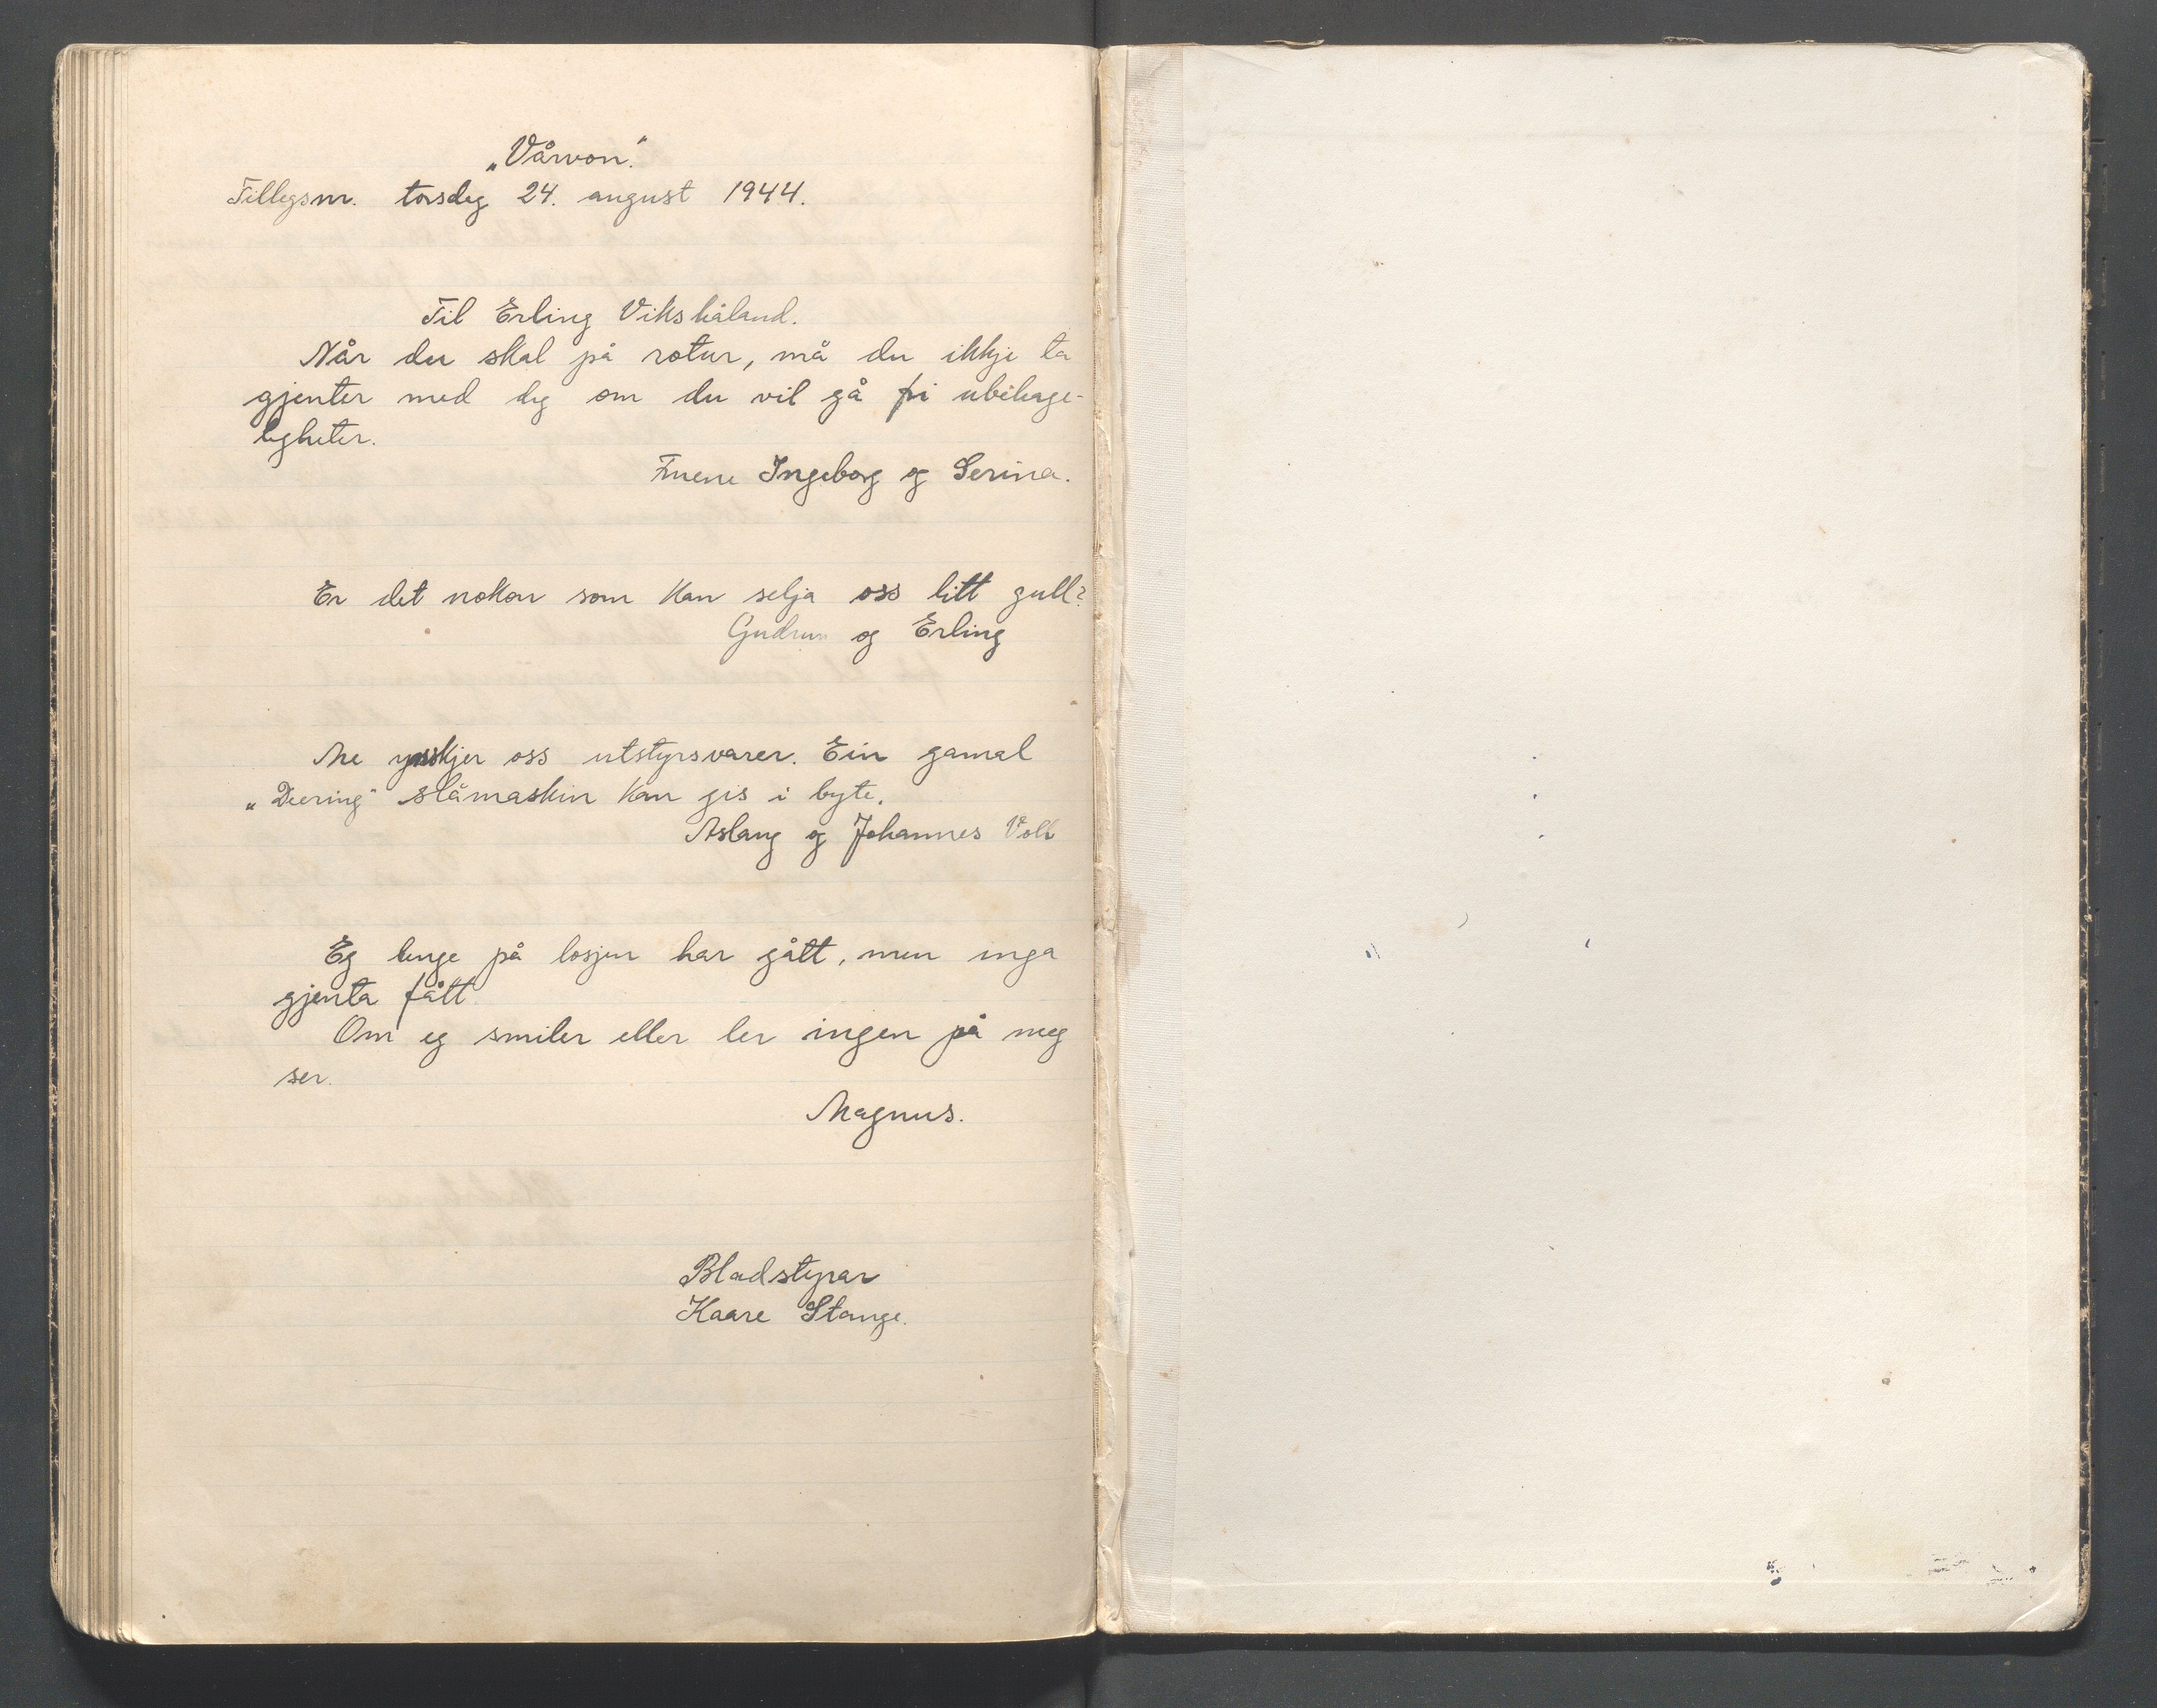 „Vårvon“.
Tillegsnr. torsdag 24. august 1944.
Til Erling Vikshåland.
Når du skal på rotur, må du ikkje ta
gjenter med deg om du vil gå fri ubehage-
ligheter.
Fruene Ingeborg og Serina.
Er det nokon som kan selja oss litt gull?
Gudrun og Erling
Me ynskjer oss utstyrsvarer. Ein gamal
„Deering“ slåmaskin kan gis i byte.
Aslaug og Johannes Voll
Eg lenge på losjen har gått, men inga
gjenta fått.
Om eg smiler eller ler ingen på meg
ser.
Magnus.
Bladstyrar
Kaare Stange.